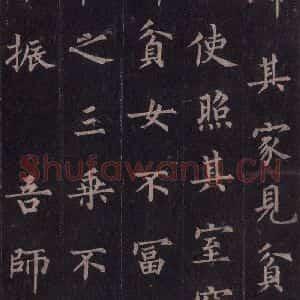 其家見貧
使照其室
貧女不冨
之三乗不
振吾師
Shufawang.CN